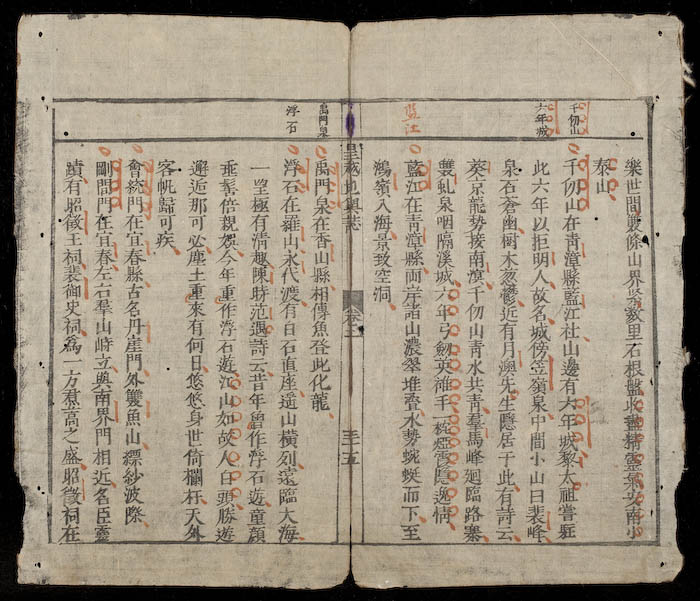 千仞山
六年城
藍江
樂世間雙條山界翠數里石根盤收盡精靈氣安南小
泰山
千仞山在青漳縣藍江社山邊有六年城黎太祖嘗駐
此六年以拒明人故名城傍笠嶺泉中間小山曰裴峰
泉石蒼幽樹木葱鬱近有月澳先生隱居于此有詩云
葵京龍勢接南溟千仞山青水共青羣馬峰廻臨路寨
雙虬泉咽隔溪城六年弓劍英雄手一椀煙霞隱逸情
藍江在青漳縣兩岸諸山濃翠堆叠水勢蜿蜒而下至
鴻嶺入海景致空洞
皇越地輿誌
卷二
三十五
禹門泉
浮石
禹門泉在香山縣相傳魚登此化龍
浮石在羅山永代渡有白石直座遥山橫列遠臨大海
一望極有清趣陳時范遇詩云昔年曾作浮石遊童顏
垂髫倍親賀今年重作浮石遊江山如故人白頭勝遊
邂逅那可必塵土重來有何日悠悠身世倚欄杆天外
客帆歸可疾
會統門在宜春縣古名丹崖門外雙魚山縹緲波際
剛間門在宜春左右羣山峙立與南界門相近名臣靈
蹟有昭徵王祠裴御史祠為一方焄蒿之盛昭徵祠在